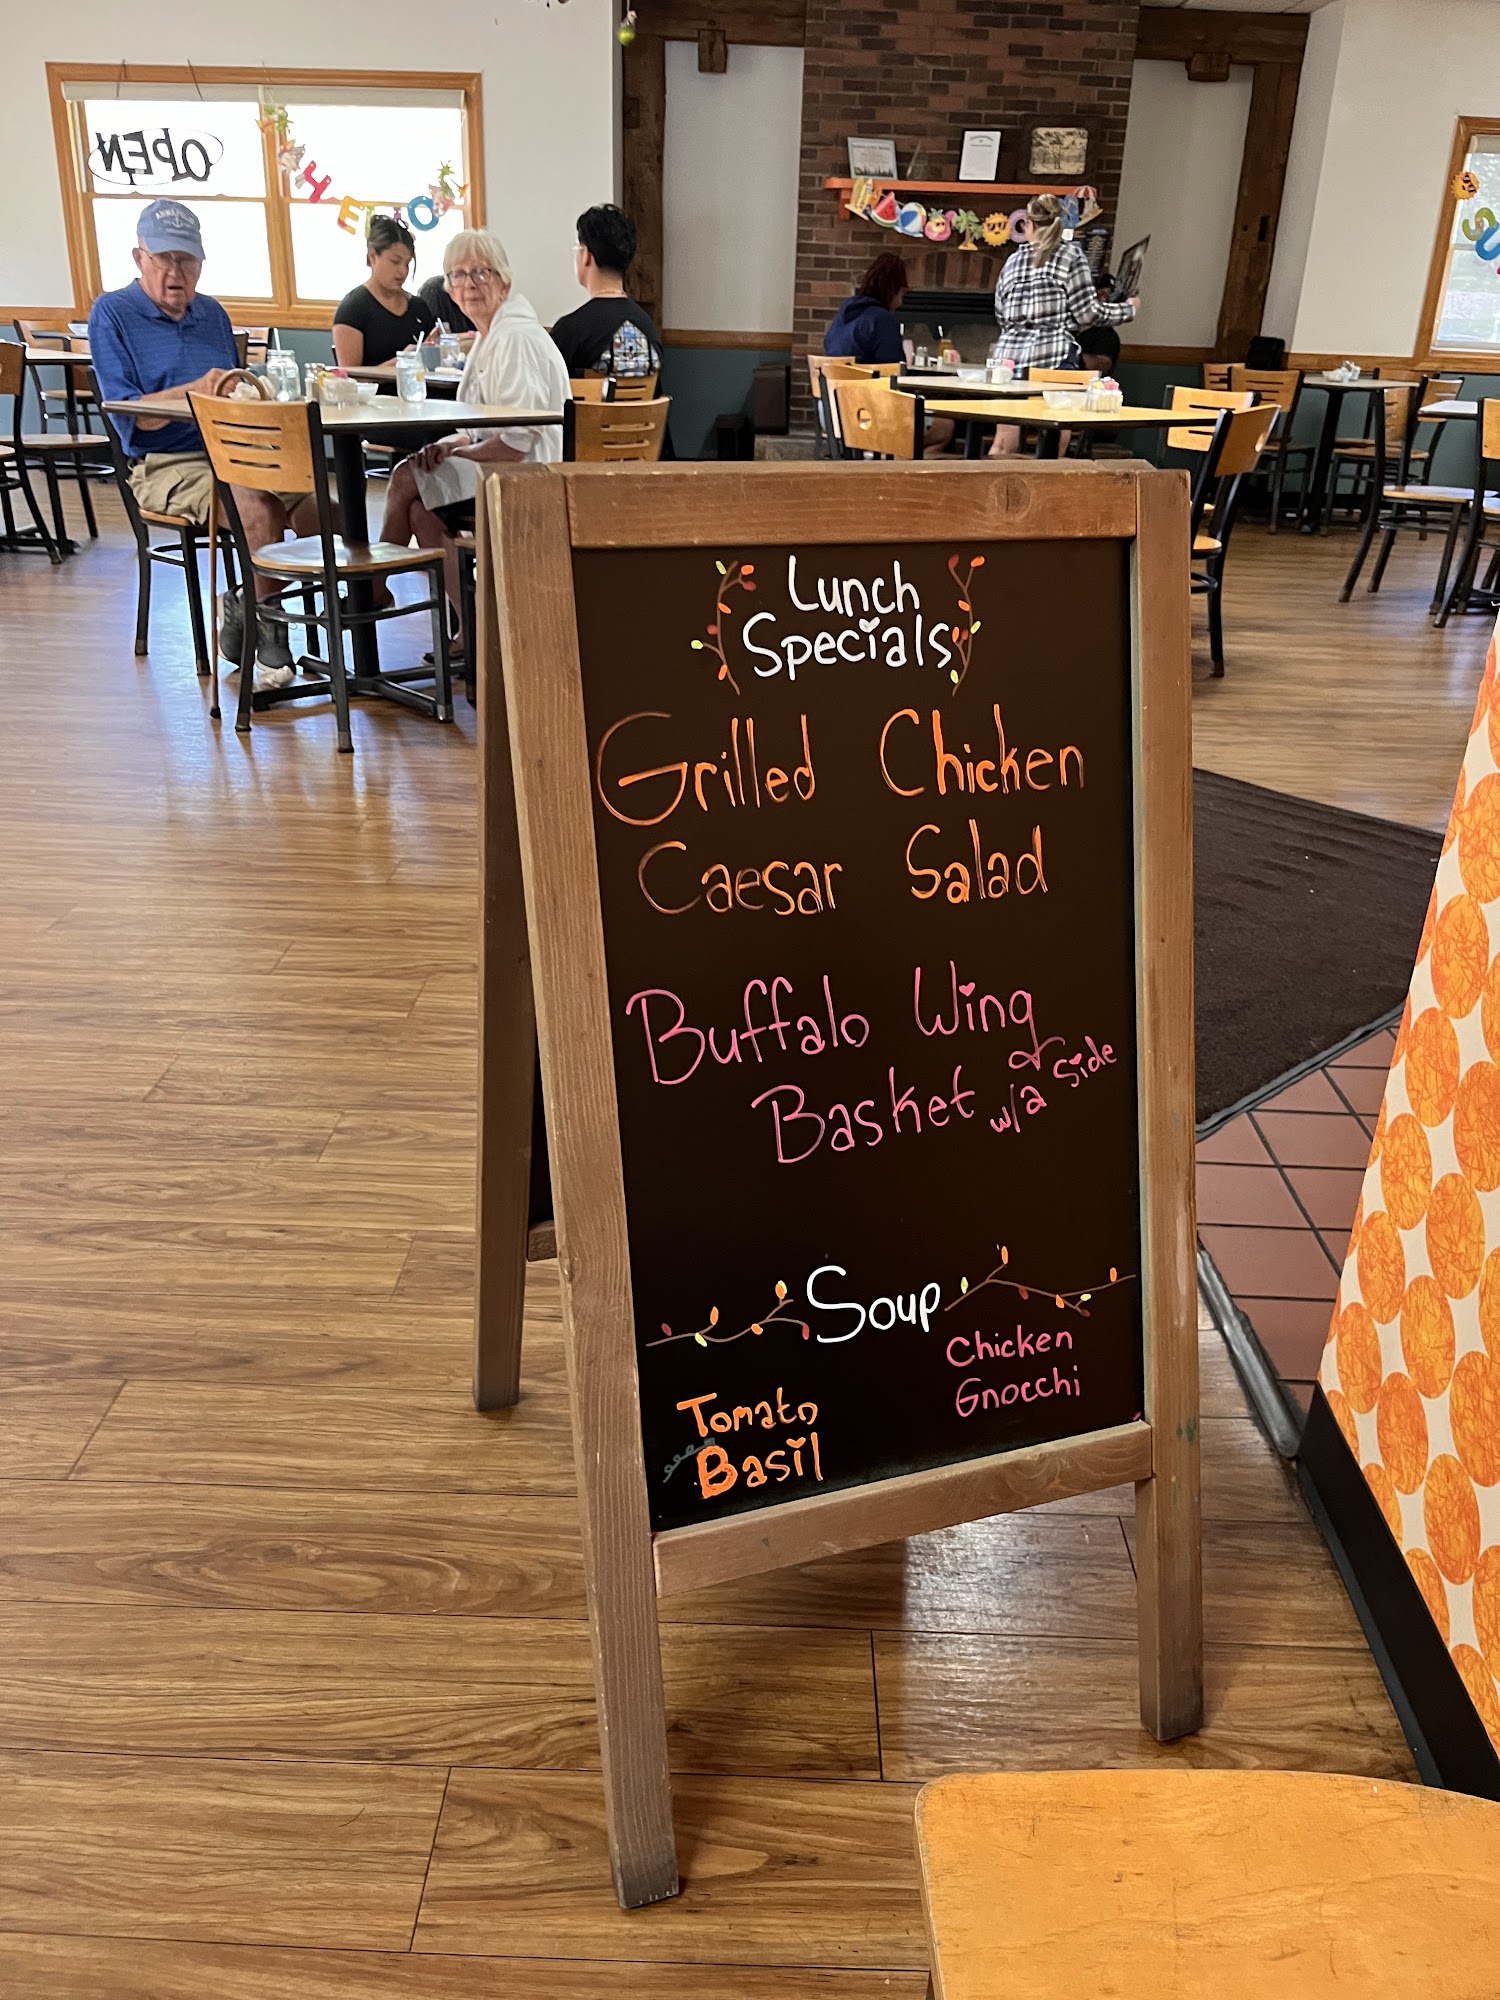 OPEN
HELLO
ANNAPOLIS
SU
Lunch
Specials
Grilled Chicken
Caesar Salad
Buffalo Wing
Basket w/a side
Soup
Tomato
Basil
Chicken
Gnocchi